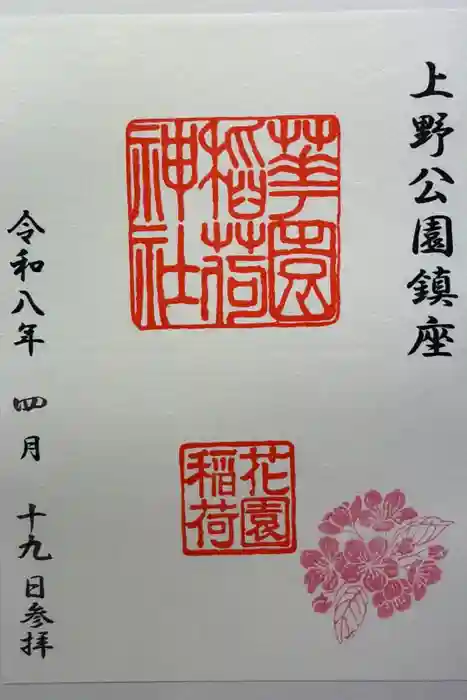 上野公園鎮座
華園
稲荷
神社
花園
稲荷
令和八年 四月 十九日参拝